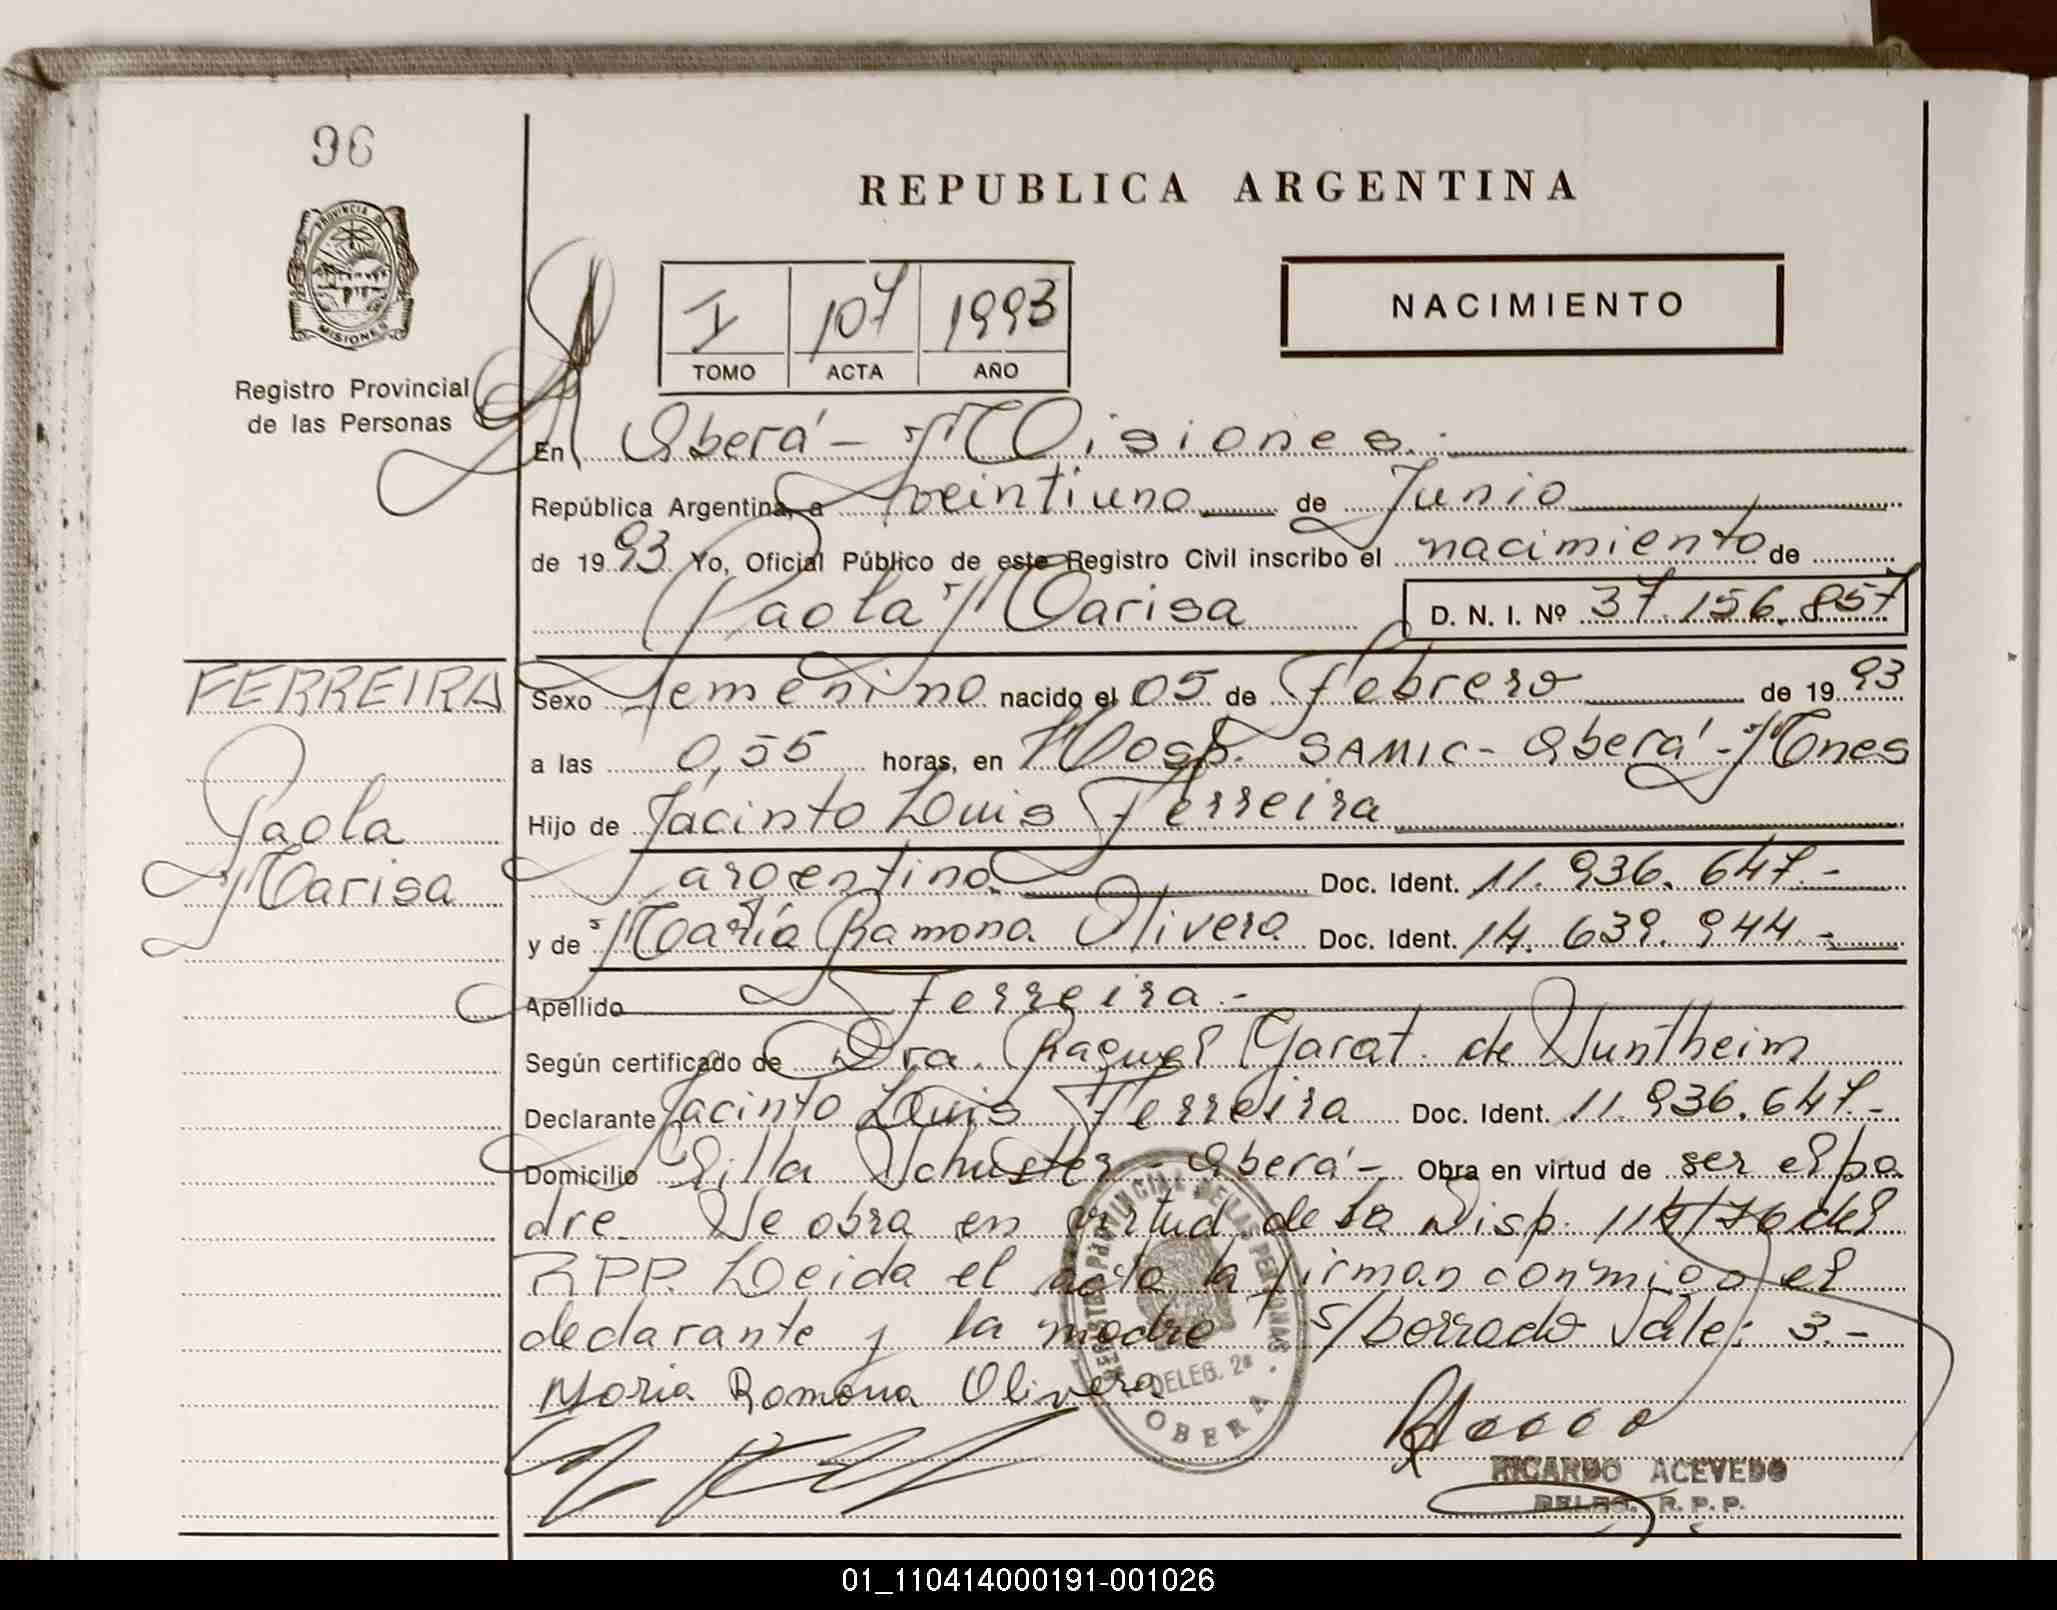 96
REPUBLICA ARGENTINA
PROVINCIA DE
MISIONES
Registro Provincial
de las Personas
I 107 1993
TOMO ACTA AÑO
NACIMIENTO
En Oberá - Misiones.
República Argentina, a veintiuno de Junio
de 1993 Yo, Oficial Público de este Registro Civil inscribo el nacimiento de
Paola Marisa D. N. I. Nº 37.156.857
FERREIRA
Paola
Marisa
Sexo femenino nacido el 05 de Febrero de 1993
a las 0,55 horas, en Hosp. SAMIC - Oberá - Mnes
Hijo de Jacinto Luis Ferreira
argentino Doc. Ident. 11.936.647.-
y de María Ramona Olivera Doc. Ident. 14.639.944.-
Apellido Ferreira.-
Según certificado de Dra. Raquel Garat de
Declarante Jacinto Luis Ferreira Doc. Ident. 11.936.647.-
Domicilio Villa Schuster - Oberá - Obra en virtud de ser el pa
dre. Se obra en virtud de la Disp. del
RPP. Leida el acta la firman conmigo el
declarante y la madre s/borrado Vale: 3.-
Maria Ramona Olivera
REGISTRO PROVINCIAL DE LAS PERSONAS
DELEG. 2ª
OBERA
RICARDO ACEVEDO
DELEG. R. P. P.
01_110414000191-001026